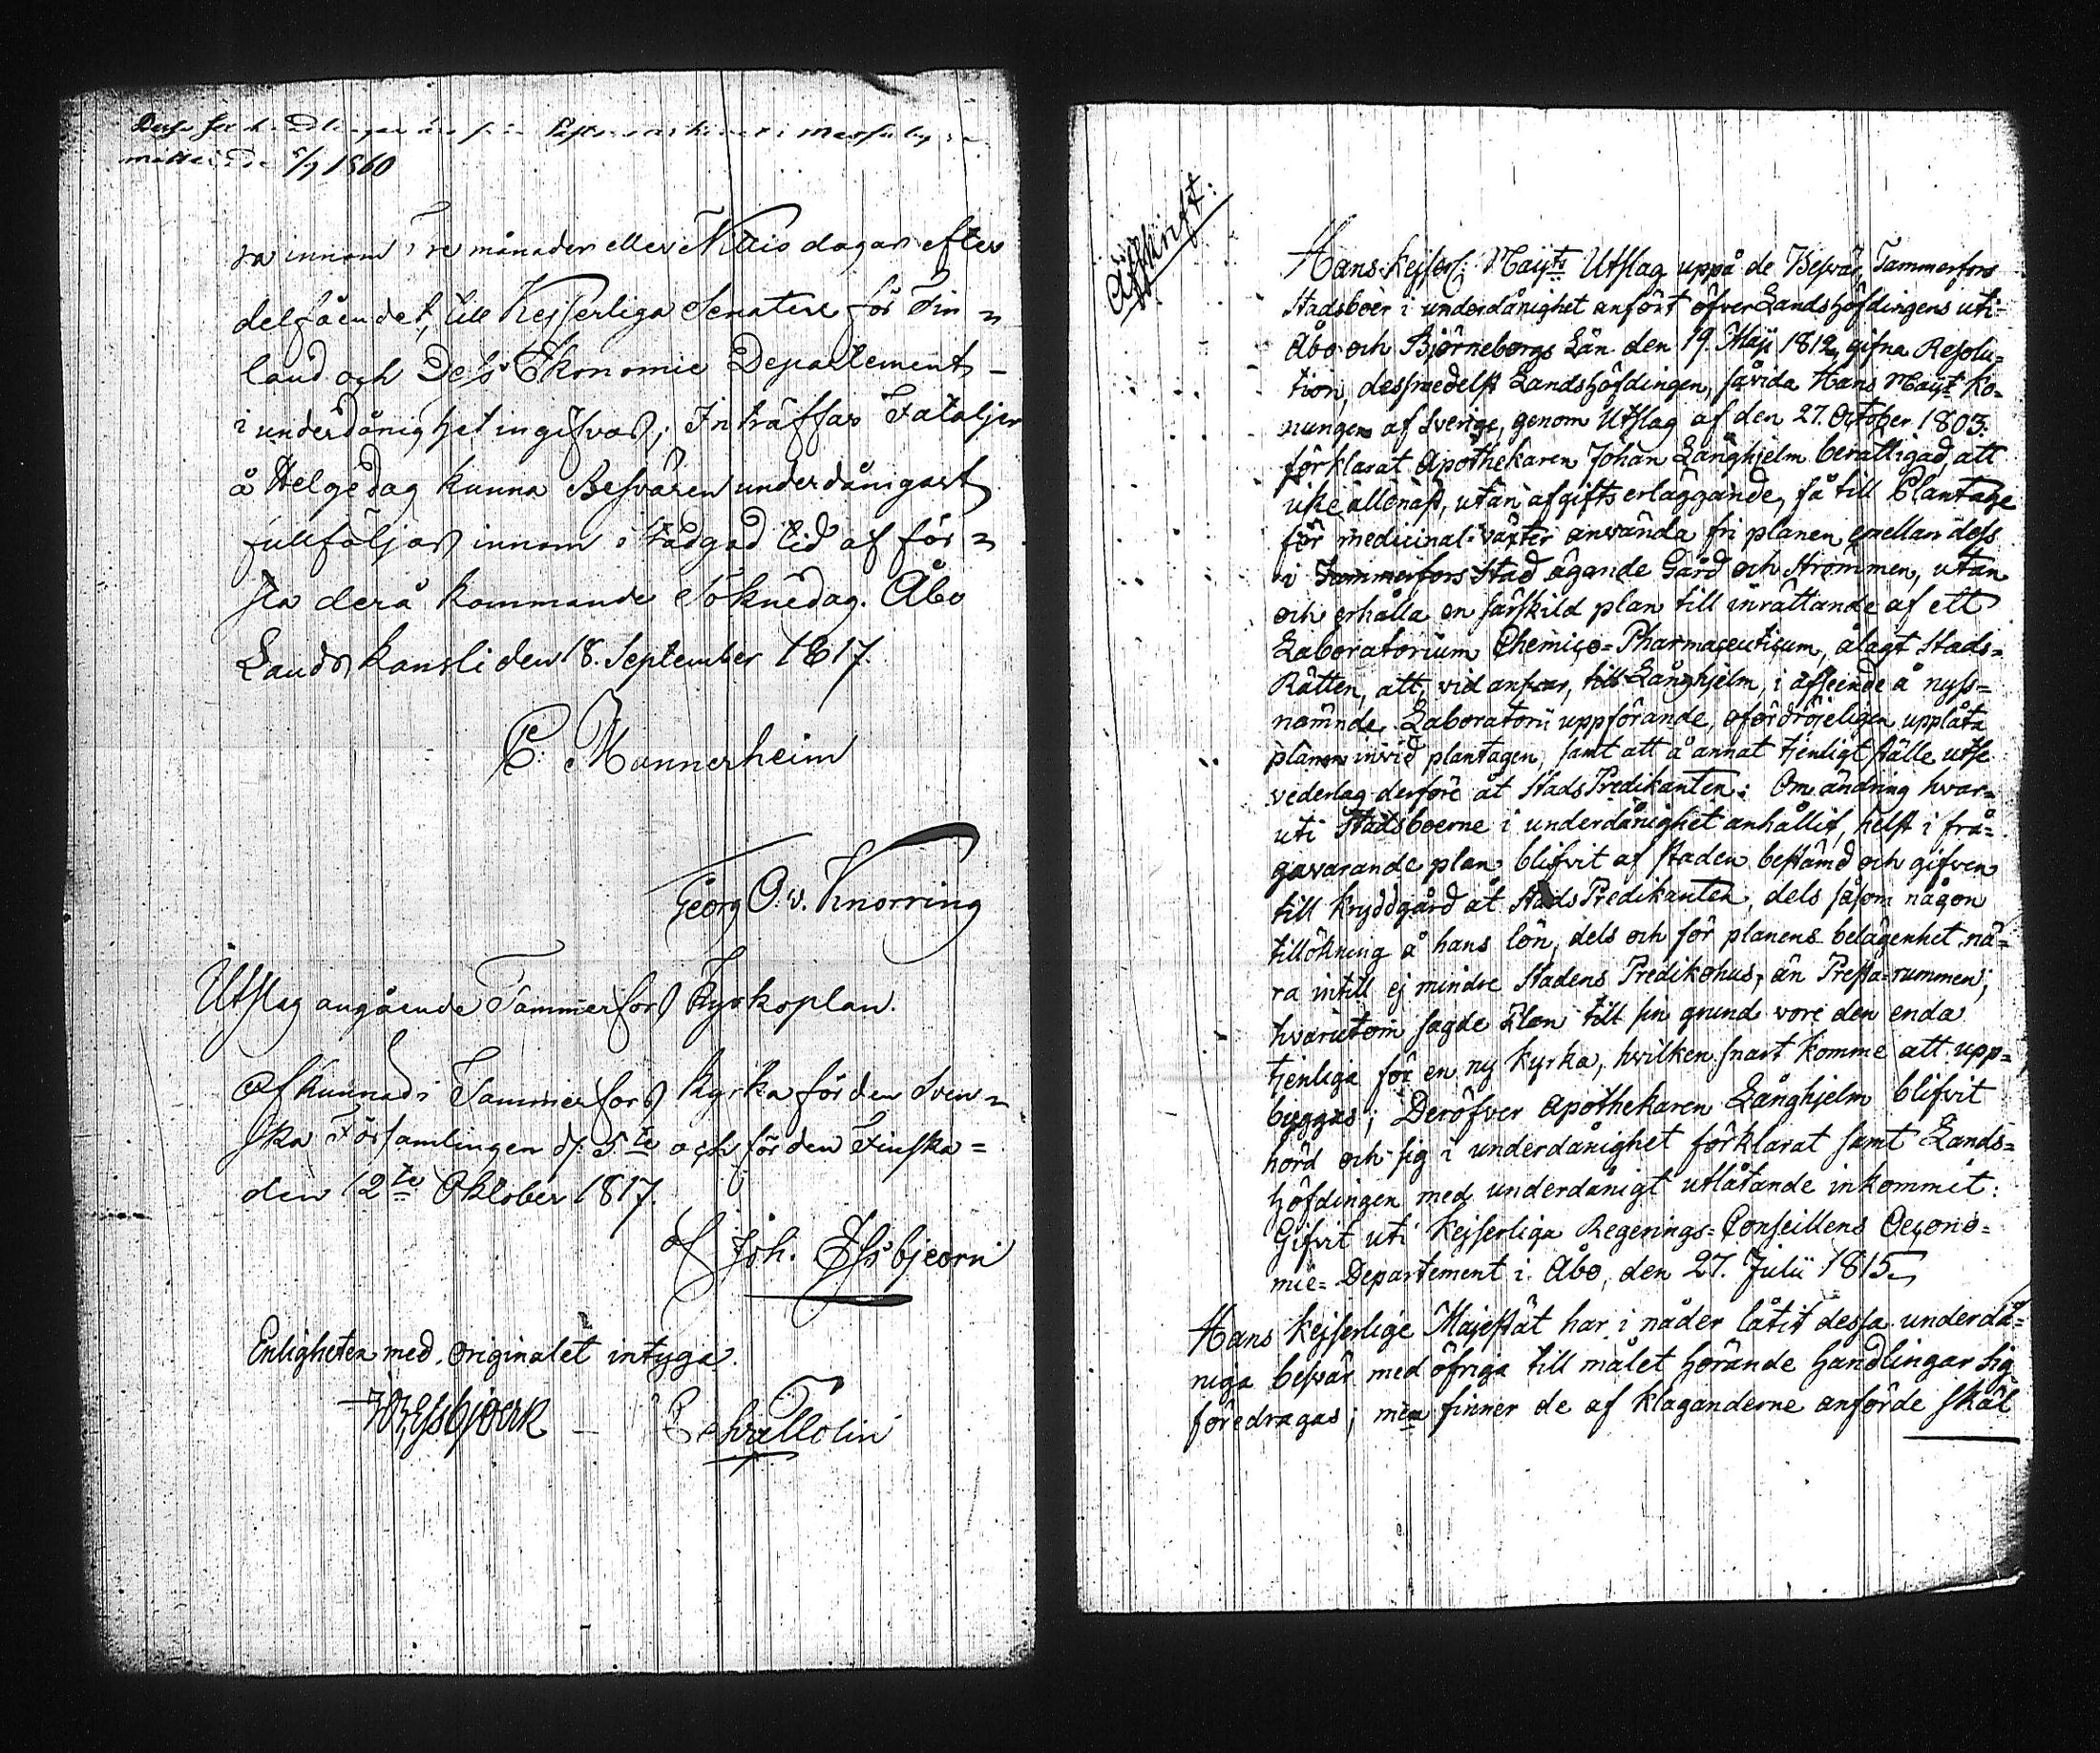 5/7 1860
ra innom Tre månader eller Nittio dagar efter
delfåendet, till Kejserliga Senaten för Fin=
land och Dess Ekonomie Departement
i underdånighet ingifvas; Inträffar Fataljer
å Helgedag kunna Besvären underdånigast
fullföljas innom stadgad tid af för=
sta derå kommande Söknedag. Åbo
Lands kansli den 18. September 1817.
C. Mannerheim
Georg O. v. Knorring
Utslag angående Tammerfors Kyrkoplan.
Afkunnadt i Tammerfors Kyrka för den Sven=
ska Församlingen d. 5te och för den Finska=
den 12te Oktober 1817.
af Joh. Essbjeorn
Enligheten med originalet intyga.
Afskrift:
Hans Kejserl: Maijts Utslag uppå de Besvär, Tammerfors
Stadsboer i underdånighet anfört öfver Landshöfdingens uti
Åbo och Björneborgs Län den 19. Maji 1812, gifna Resolu=
tion, dessmedelst Landshöfdingen, såvida Hans Maijt Ko=
nungen af Sverige, genom Utslag af den 27. October 1803.
förklarat Apothekaren Johan Långhjelm berättigad, att
icke allenast, utan afgifts erläggande, få till Plantage
för medicinal-växter använda fri planen emellan dess
i Tammerfors Stad ägande Gård och Strömmen, utan
och erhålla en särskild plan till inrättande af ett
Laboratorium Chemico=Pharmaceuticum, ålagt Stads=
Rätten, att, vid ansvar, till Långhjelm, i afseende å nyss=
nämnde Laboratorii uppförande, ofördröjeligen upplåta
planen invid plantagen, samt att å annat tjenligt ställe utse
vederlag derföre åt StadsPredikanten: Om ändring hvar=
uti Stadsboerne i underdånighet anhållit, helst i frå=
gavarande plan blifvit af staden bestämd och gifven
till Kryddgård åt StadsPredikanten, dels såsom någon
tillökning å hans lön, dels och för planens belägenhet nä=
ra intill ej mindre Stadens Predikohus, än Presta=rummen;
hvarutom sagde Plan till sin grund vore den enda
tjenliga för en ny kyrka, hvilken snart komme att upp=
byggas; Deröfver Apothekaren Långhjelm blifvit
hörd och sig i underdånighet förklarat samt Lands=
höfdingen med underdånigt utlåtande inkommit:
Gifvit uti Kejserliga Regerings=Conseillens Oecono=
mie=Departement i Åbo, den 27. Julii 1815.
Hans Kejserlige Majestät har i nåder låtit dessa underdå=
niga besvär med öfriga till målet hörande handlingar sig
föredragas; men finner de af klaganderne anförde skäl